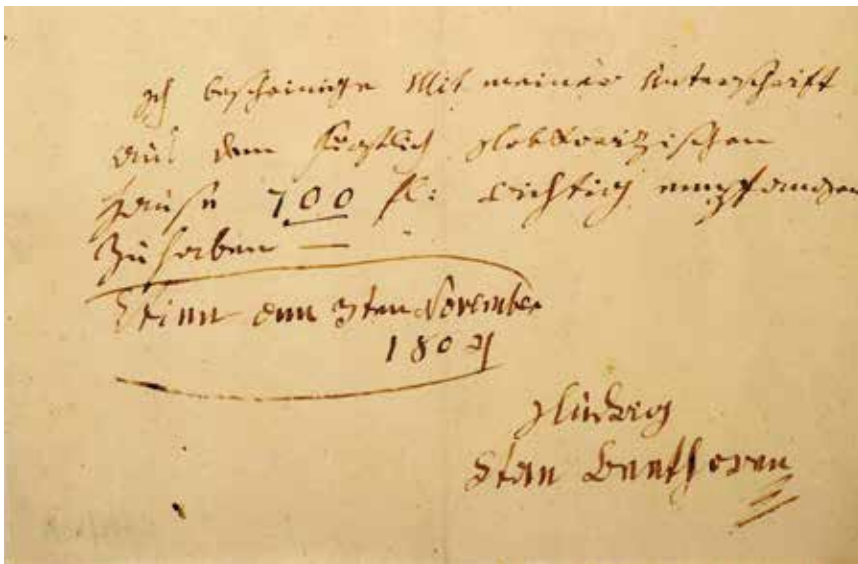 Ich bescheinige Mit meiner Unterschrift
aus dem Fürstlich Lobkowizischen
Hause 700 fl: richtig empfangen
zu haben —
Vien am 3ten November
1804
Ludwig
van Beethoven